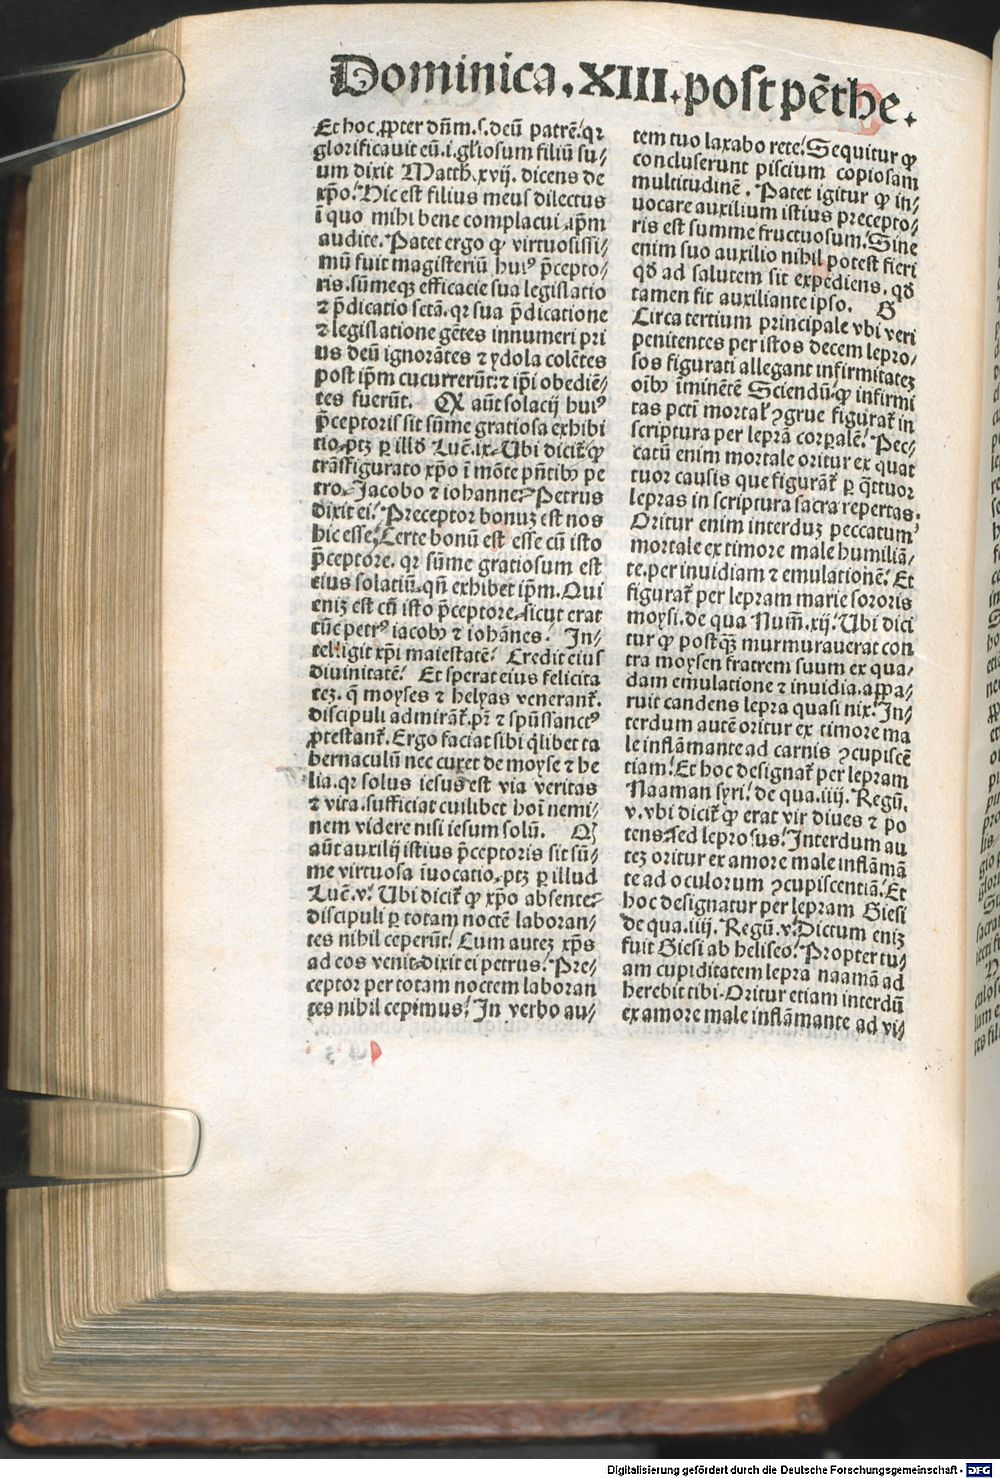 Dominica. XIII. post pēthe.
Et hoc ꝓpter dñm .s. deū patrē. qꝛ
glorificauit eū .i. gl'iosum filiū su/
um dixit Matth. xvij. dicens de
xp̄o. Hic est filius meus dilectus
ī quo mihi bene complacui ip̄m
audite. Patet ergo ꝙ virtuosissi/
mū fuit magisteriū huiꝰ p̄cepto/
ris. sūmeqꝫ efficacie sua legislatio
⁊ p̄dicatio sctā. qꝛ sua p̄dicatione
⁊ legislatione gētes innumeri pri
us deū ignorātes ⁊ ydola colētes
post ip̄m cucurrerūt: ⁊ ip̄i obediē/
tes fuerūt. Qꝙ aūt solacij huiꝰ
p̄ceptoris sit sūme gratiosa exhibi
tio. ptꝫ ꝑ illđ Luc̄. ix. Ubi dicit' ꝙ
trāsfigurato xp̄o ī mōte p̄ntibꝰ pe
tro. Jacobo ⁊ iohanne. Petrus
dixit ei. Preceptor bonuꝫ est nos
hic esse. Certe bonū est esse cū isto
p̄ceptore. qꝛ sūme gratiosum est
eius solatiū. qñ exhibet ip̄m. Qui
eniꝫ est cū isto p̄ceptore. sicut erat
tūc petrꝰ iacobꝰ ⁊ iohānes. In/
telligit xp̄i maiestatē. Credit eius
diuinitatē. Et sperat eius felicita
teꝫ. q̄ moyses ⁊ helyas venerant'.
discipuli admirāt'. pr̄ ⁊ spūssanctꝰ
ꝓtestant'. Ergo faciat sibi qͥlibet ta
bernaculū nec curet de moyse ⁊ he
lia. qꝛ solus iesus est via veritas
⁊ vita. sufficiat cuilibet hoī nemi/
nem videre nisi iesum solū. Qꝙ
aūt auxilij istius p̄ceptoris sit sū/
me virtuosa īuocatio. ptꝫ ꝑ illud
Luc̄. v. Ubi dicit' ꝙ xp̄o absente
discipuli ꝑ totam noctē laboran/
tes nihil ceperūt. Cum auteꝫ xp̄s
ad eos venit. dixit ei petrus. Pre/
ceptor per totam noctem laboran
tes nihil cepimus. In verbo au/
tem tuo laxabo rete. Sequitur ꝙ
concluserunt piscium copiosam
multitudinē. Patet igitur ꝙ in/
uocare auxilium istius precepto/
ris est summe fructuosum. Sine
enim suo auxilio nihil potest fieri
qđ ad salutem sit expediens. qđ
tamen fit auxiliante ipso. G
Circa tertium principale vbi veri
penitentes per istos decem lepro/
sos figurati allegant infirmitateꝫ
oibꝰ īminētē Sciendū. ꝙ infirmi
tas pcti mortal' ꝯgrue figurat' in
scriptura per leprā corꝑalē. Pec/
catū enim mortale oritur ex quat
tuor causis que figurāt' ꝑ qͣttuor
lepras in scriptura sacra repertas.
Oritur enim interduꝫ peccatum
mortale ex timore male humiliā/
te. per inuidiam ⁊ emulationē. Et
figurat' per lepram marie sororis
moysi. de qua Num̄. xij. Ubi dici
tur ꝙ postqꝫ murmurauerat con
tra moysen fratrem suum ex qua/
dam emulatione ⁊ inuidia. appa/
ruit candens lepra quasi nix. In/
terdum autē oritur ex timore ma
le inflāmante ad carnis ꝯcupiscē
tiam. Et hoc designat' per lepram
Naaman syri. de qua. iiij. Regū.
v. vbi dicit' ꝙ erat vir diues ⁊ po
tens. sed leprosus. Interdum au
teꝫ oritur ex amore male inflāmā
te ad oculorum ꝯcupiscentiā. Et
hoc designatur per lepram Giesi
de qua. iiij. Regū. v. Dictum eniꝫ
fuit Giesi ab heliseo. Propter tu/
am cupiditatem lepra naamā ad
herebit tibi. Oritur etiam interdū
ex amore male inflāmante ad vi/
Digitalisierung gefördert durch die Deutsche Forschungsgemeinschaft - DFG